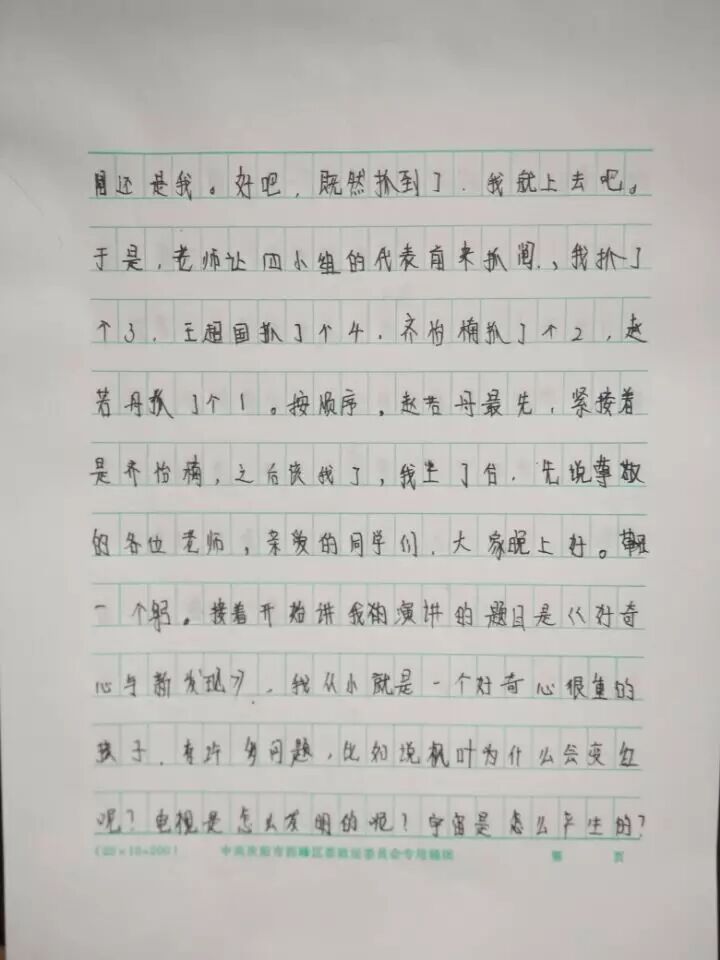 目还是我。好吧，既然抓到了，我就上去吧。
于是，老师让四小组的代表前来抓阄，我抓了
个3，王超国抓了个4，齐怡楠抓了个2，赵
若丹抓了个1。按顺序，赵若丹最先，紧接着
是齐怡楠，之后该我了，我上了台，先说尊敬
的各位老师，亲爱的同学们，大家晚上好。
一个躬。接着开始讲我的演讲的题目是《好奇
心与新发现》，我从小就是一个好奇心很重的
孩子，有许多问题，比如说枫叶为什么会变红
呢？电视是怎么发明的呢？宇宙是怎么产生的？
(20×10=200) 中共庆阳市西峰区委政法委员会专用稿纸 第 页